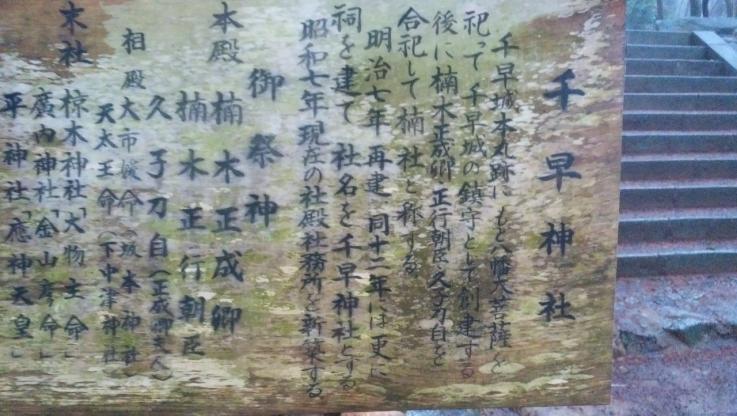 千早神社
千早城本丸跡に もと八幡大菩薩を
祀って千早城の鎮守として創建する
後に楠木正成卿 正行朝臣 久子刀自を
合祀して楠社と称する
明治七年再建 同十二年には更に
祠を建て 社名を千早神社とする
昭和七年現在の社殿社務所を新築する
御祭神
本殿 楠木正成卿
楠木正行朝臣
久子刀自（正成卿夫人）
相殿 大市媛命（坂本神社）
天太玉命（下中津神社）
末社 椋木神社「大物主命」
廣内神社「金山彦命」
平神社「應神天皇」